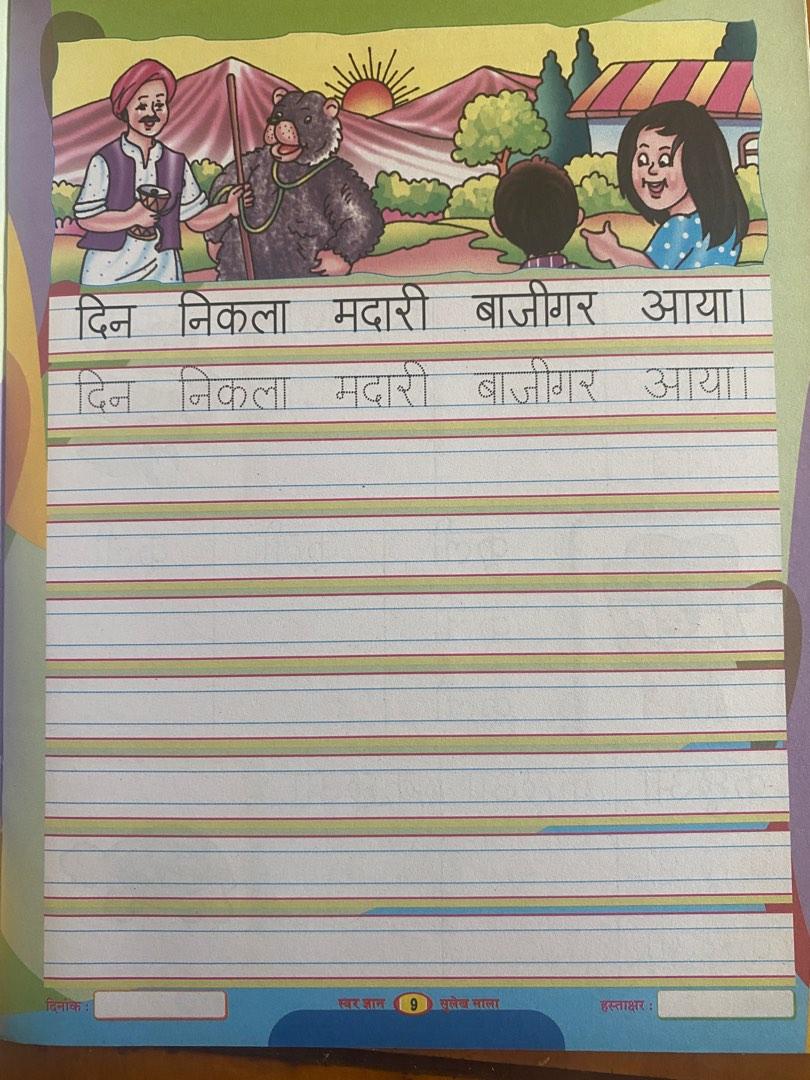 दिन निकला मदारी बाजीगर आया।
दिन निकला मदारी बाजीगर आया।
दिनांक : स्वर ज्ञान 9 सुलेख माला हस्ताक्षर :